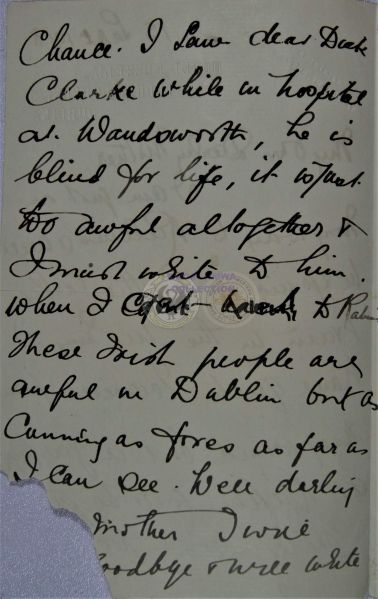 Chance. I saw dear Dick
Clarke while in hospital
at Wandsworth, he is
blind for life, it is just
too awful altogether &
I must write to him
when I get back to
These Irish people are
awful in Dublin but as
Cunning as foxes as far as
I can see. Well darling
mother I will
goodbye & will write
COLLECTION